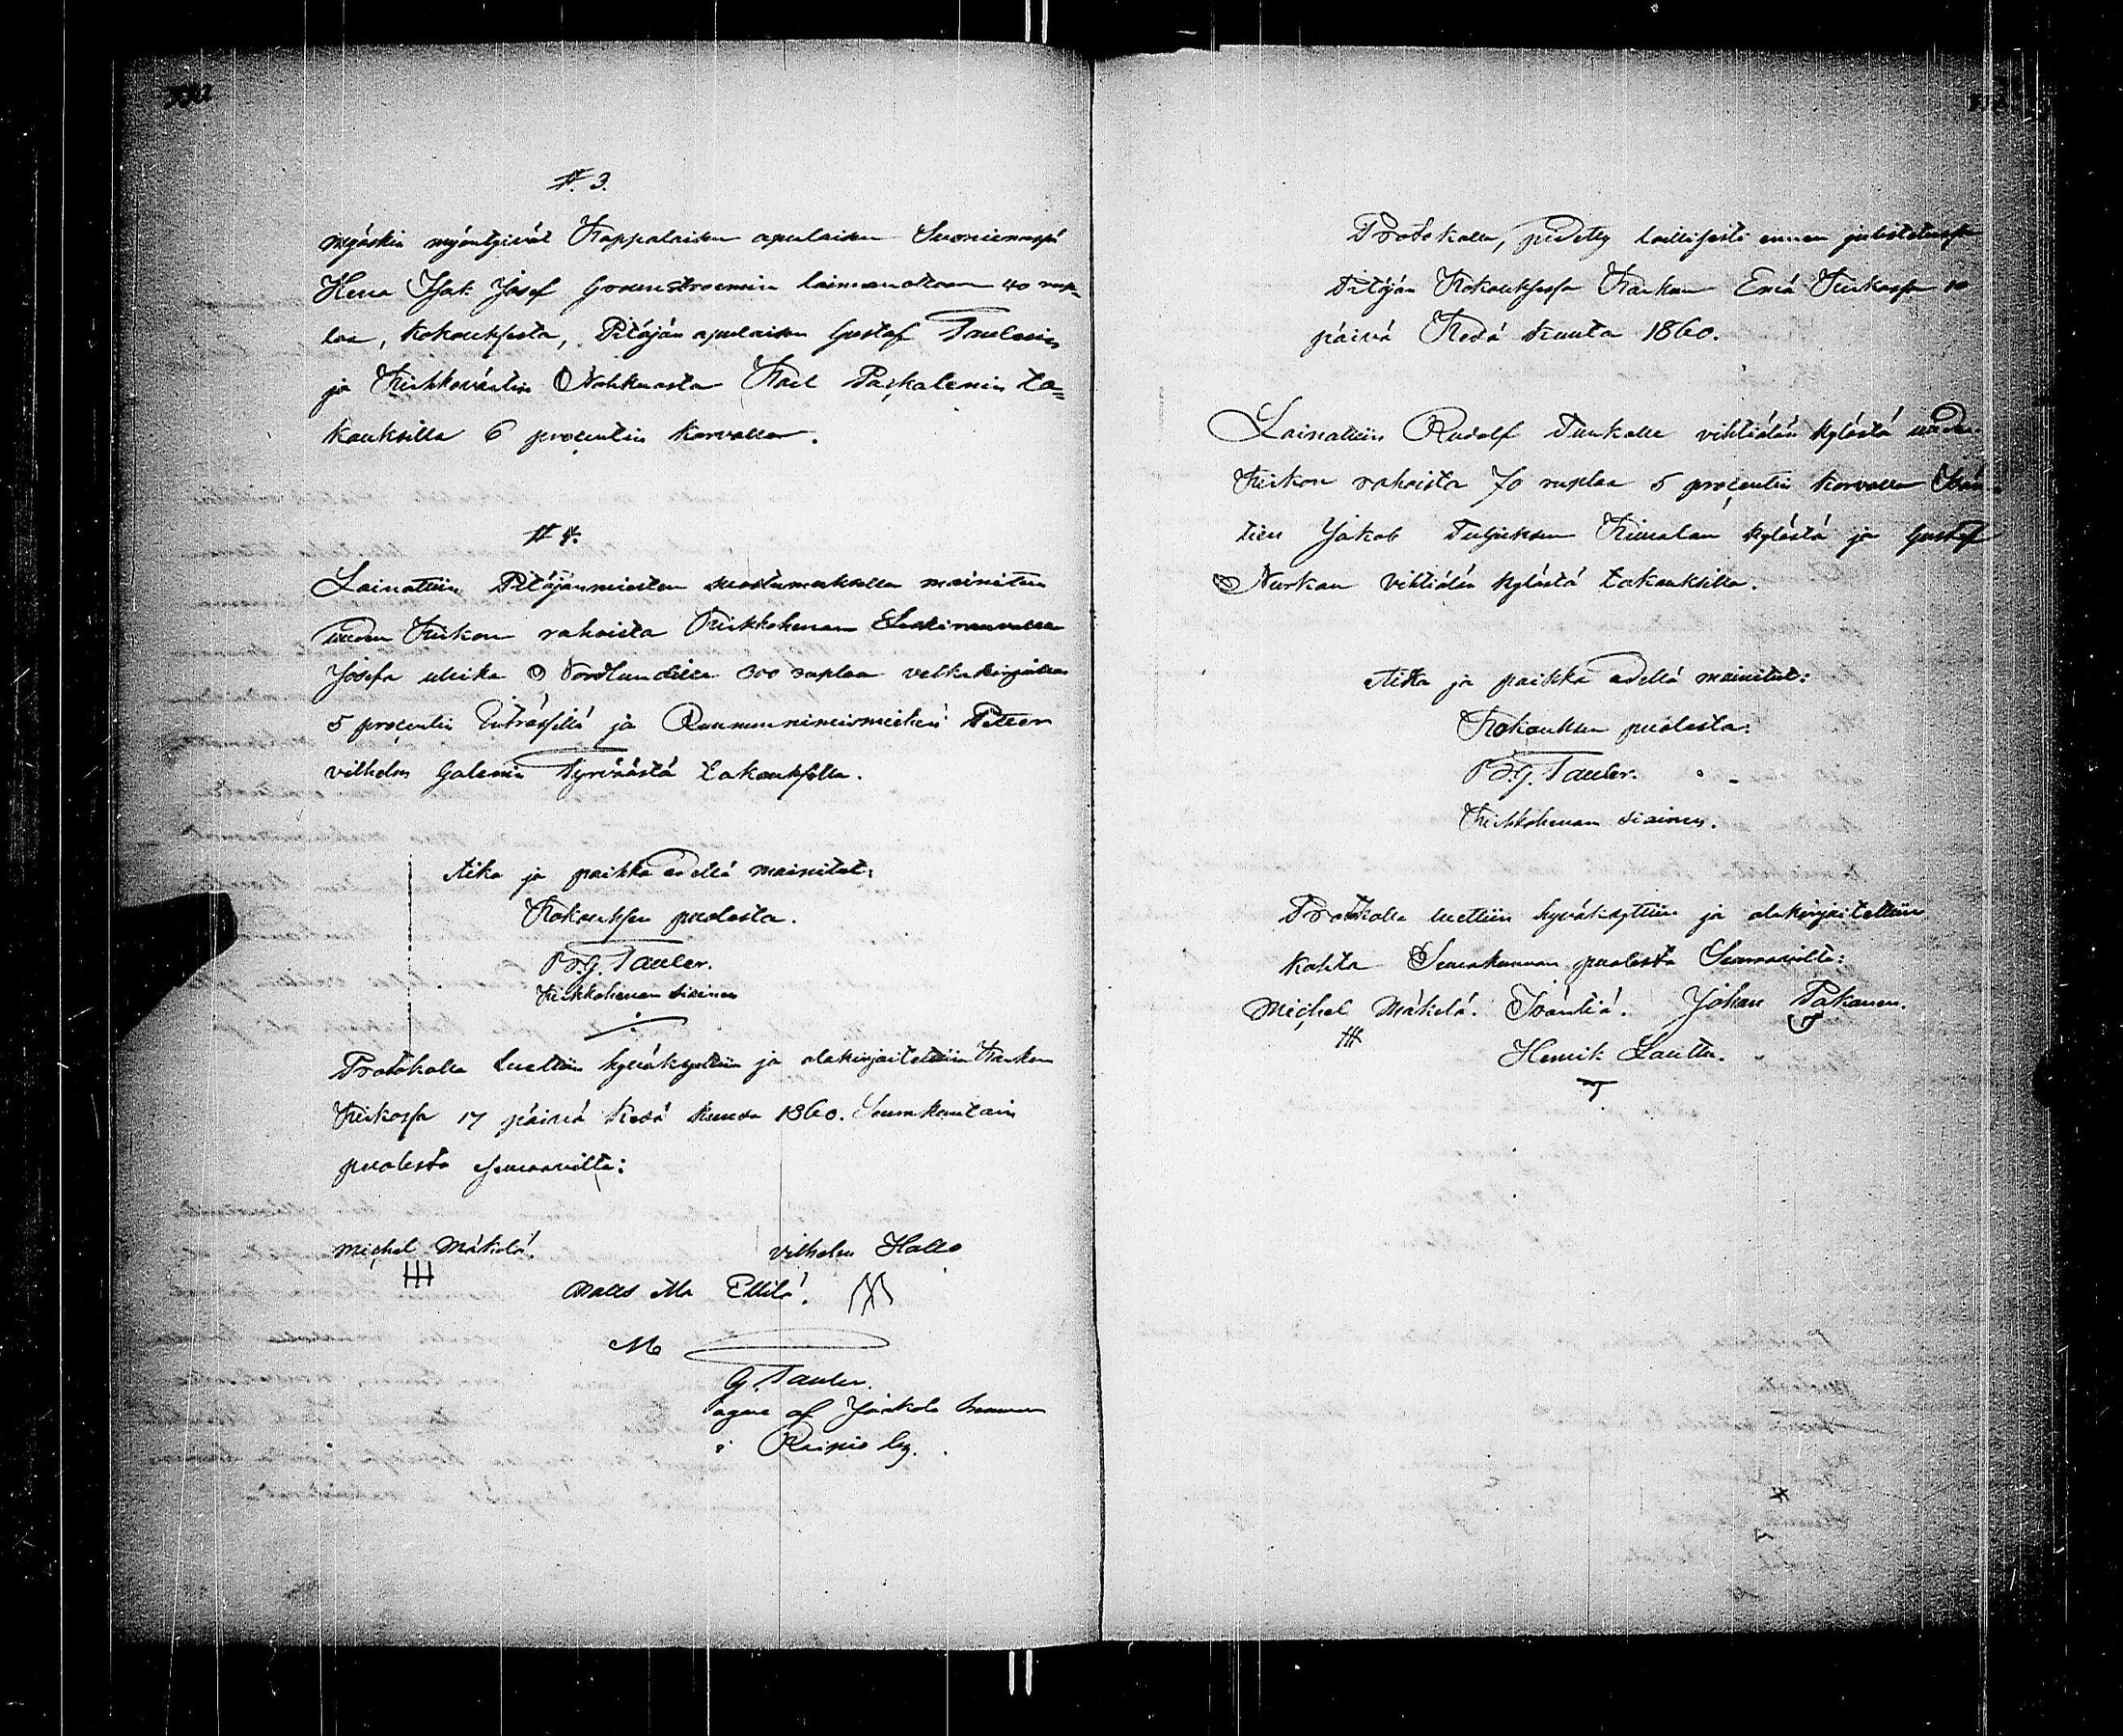 #. 3.
myöskin myöntyivät Kappalaisen apulaisen Suoniemessä
Herra Isak Josef Grönnstroemin lainanottoon 40 rup-
laa, kokouksesta, Pitäjän apulaisen Gustaf Taulerin
ja Kirkkoväärtin Nohkuasta Karl Paskalenin ta=
kauksilla 6 procentin korvalla.
# 4.
Lainattiin Pitäjänmiesten suostumuksella mainitun
uuden Kirkon rahoista Kirkkoherran
Josefa ulrika Nordlundille 300 ruplaa velkakirjalla
5 procentin Intressillä ja Ruununnimismiehen Petter
vilhelm Galenin Tyrväästä takauksella.
Aika ja paikka edellä mainitut:
Kokouksen puolesta.
G. Tauler.
Kirkkoherran siainen
Protokolla luettiin hyväksyttiin ja alakirjoitettiin Karkun
Kirkossa 17 päivä Kesä kuusa 1860. Seurakuntain
puolesta seuraavilta:
Michel Mäkelä.
vilhelm Hallo
Matts Ma Ellilä.
M
G. Tauler.
ägare af Jaakola hemman
i Rainio by.
Protokolla, pidetty laillisesti ennen julistetussa
Pitäjän Kokouksessa Karkun Emä Kirkossa 10
päivä Kesä kuuta 1860.
Lainattiin Rudolf Turkalle vihtiälän kylästä uuden
Kirkon rahoista 70 ruplaa 5 procentin korvalla
Jakob Tuljuksen Kiuralan kylästä ja Gustaf
Nurkan vihtiälän kylästä takauksilla.
Aika ja paikka edellä mainitut:
Kokouksen puolesta:
G. Tauler.
Kirkkoherran siainen.
Protokolla luettiin hyväksyttiin ja alakirjoitettiin
kohta Seurakunnan puolesta Seuraavilta:
Michel Mäkelä. Johan Pakanen.
Henrik Lautta.